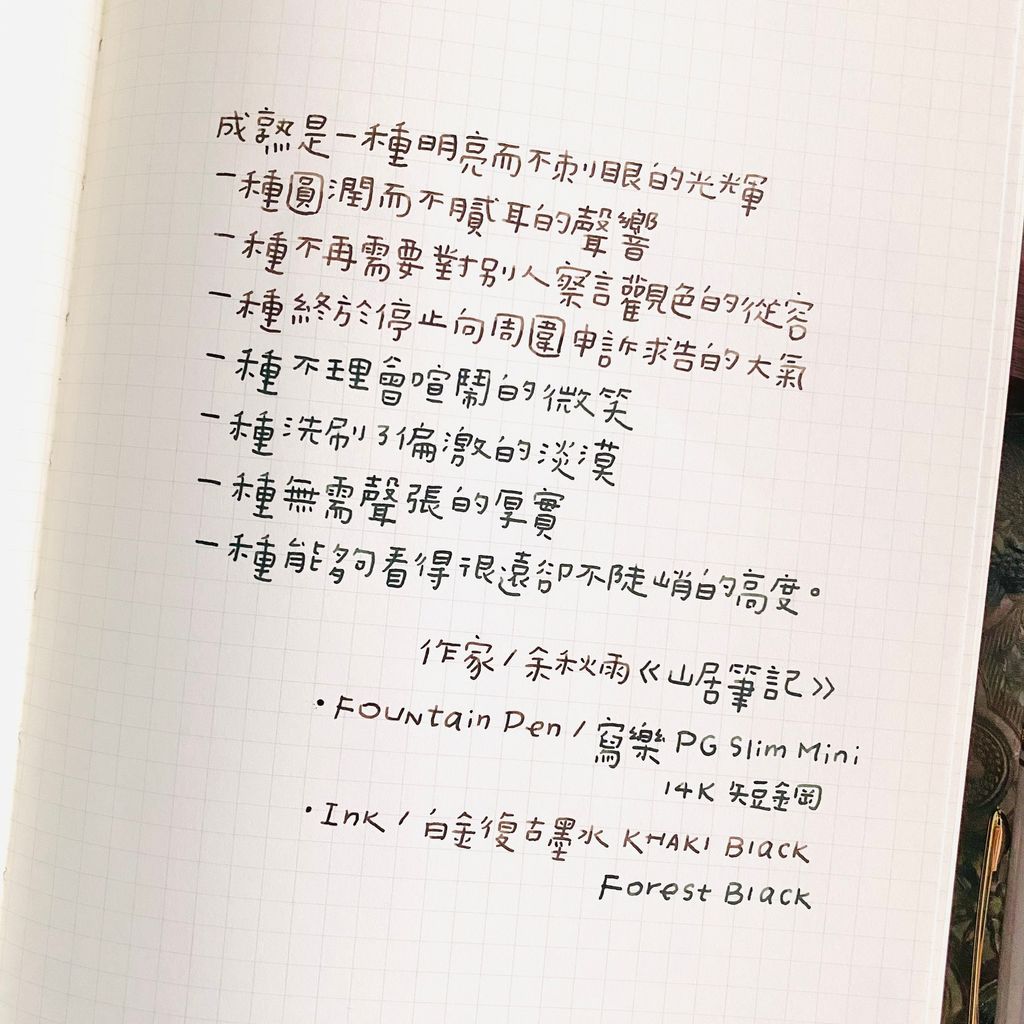 成熟是一種明亮而不刺眼的光輝
一種圓潤而不膩耳的聲響
一種不再需要對別人察言觀色的從容
一種終於停止向周圍申訴求告的大氣
一種不理會喧鬧的微笑
一種洗刷了偏激的淡漠
一種無需聲張的厚實
一種能夠看得很遠卻不陡峭的高度。
作家/余秋雨《山居筆記》
·Fountain Pen/寫樂 PG Slim Mini
14K 短鋼
·Ink/白金復古墨水 KHAKI Black
Forest Black